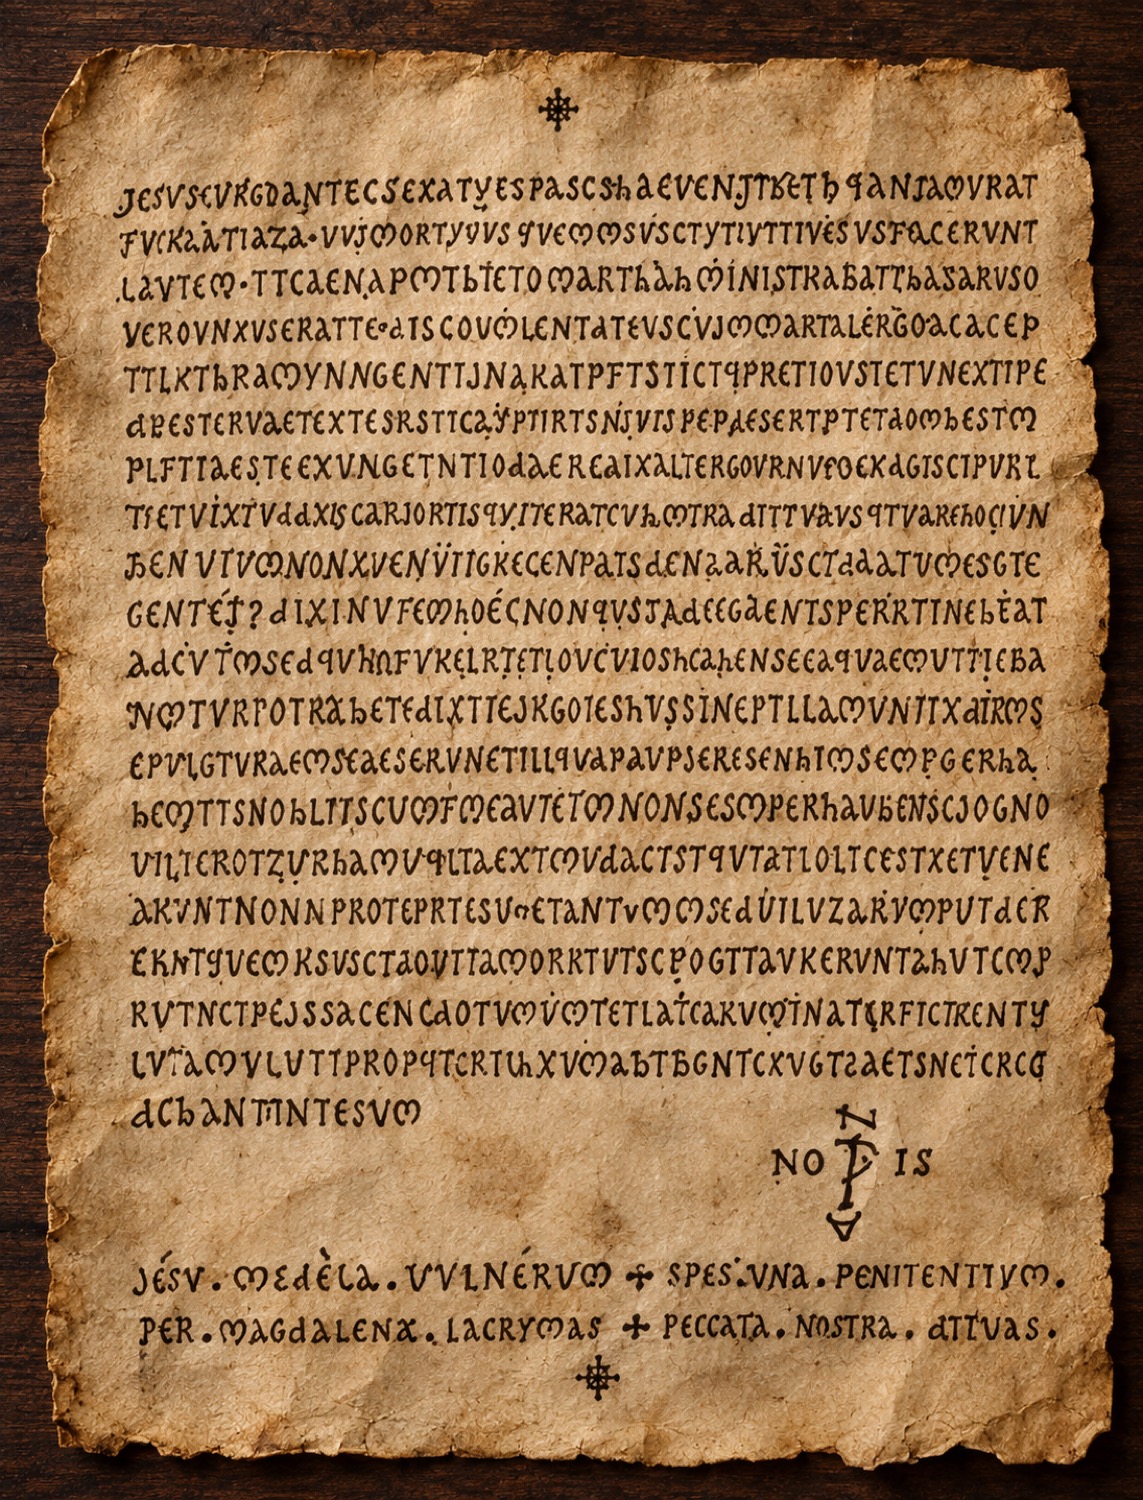 JESVSEVRGDANTECSEXATYESPASCShAEVENJTBETh qANJAMVRAT
FVCKAATIAZA·VVJMORTYVVS qVEMMSVSCTYTIVTTIVESVSFACERVNT
LAVTEM·TTCAENAPMTbIETOMARThAhMINISTRABATTbASARVSO
VEROVNXVSERATTE·dISCOVMLENTATEVSCVJMMARTALERGOACACEP
TTLKTbRAMYNNGENTIJNAKATPFTSTICTqPRETIOVSTETVNEXTIPE
dPESTERVAETEXTESRSTICAYPTIRTSNJVISPEPAESERTPTETAOMbESTM
PLFTIAESTEEXVNGETNTIOdAEREAIXALTERGOVRNVFOEKdGISCIPVRL
TIETVIXTVddXISCARJORTISqYITERATCVhMTRAdITTVAVSqTVAREhOCIVN
BENVTVMNONXVENVIIGKECENPATSdENAARVSCTdAATVMESGTE
GENTEJ? dIXINVFEMhOECNONqVSTAdEEGAENTSPERRTINEbEAT
AdCVTMSEdqVhNFVKELRTETIOVCVIOShCAhENSEEAqVAEMVTTIEBA
NMTVRPOTRAbETEdIXTTEJKGOIEShVSSINEPTLLAMVNITXdIRMS
EPVLGTVRAEMSEAESERVNETILLqVAPAVPSERESENhIMSEMPGERhA
bEMTTSNObLITSCUMFMEAVTETMNONSESMPERhAVBENSCJOGNO
VILIEROTZVRbAMVqLTAEXTMVdACTSTqVTATIOLTCESTXETVENE
AKVNTNONNPROTEPRTESVETANTVMMSEdVILVZARVMPUTdER
EKNTqVEMKSVSCTAOVTTAMORRTVTSCPOGTTAVKERVNTAhVTCMP
RVTNCTPEJSSACENCdOTVMVMTETLATCARVMINATRRFICTRENTY
LVTAMVLVTTPROPqTCRTLhXVMAbTBGNTCXVGTZAETSNETCRCG
dCbANTMNTESVM
NO IS
JÉSV . MEdÈLA . VVLNÉRVM + SPES . VNA . PENITENTIVM .
PER . MAGdALENA . LACRYMAS + PECCATA . NOSTRA . dILVAS .